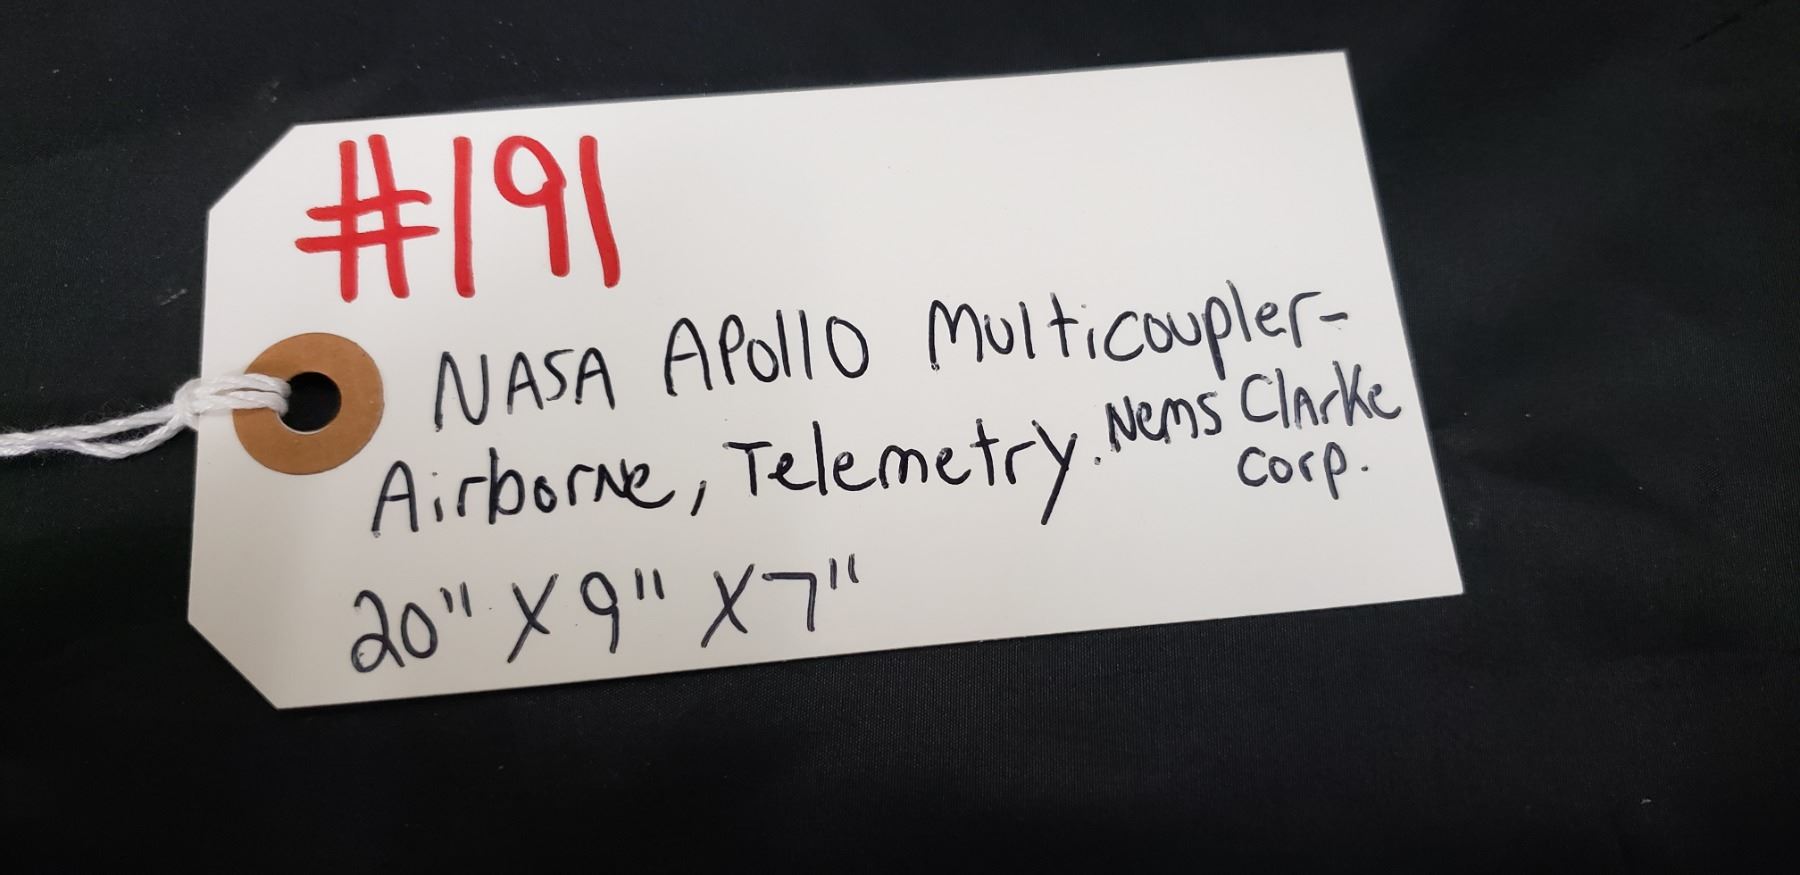 #191
NASA Apollo Multicoupler-
Airborne, Telemetry. Nems Clarke
Corp.
20" X 9" X 7"